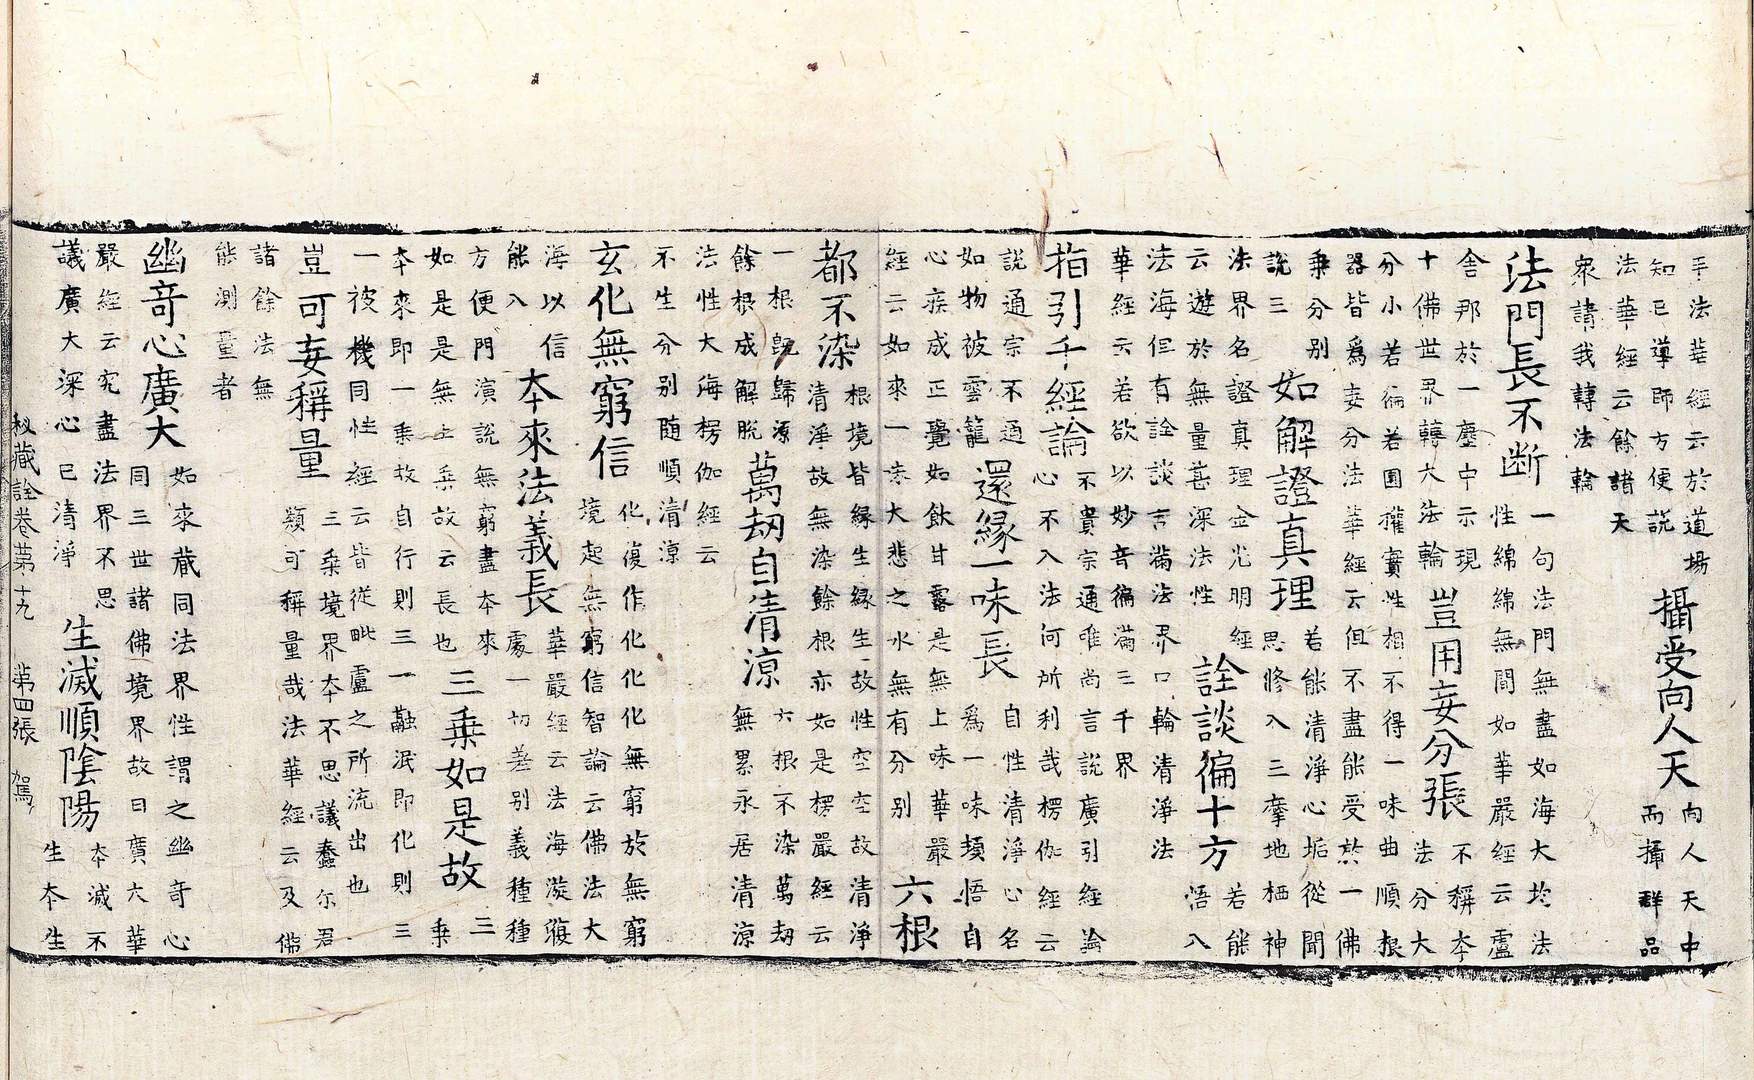 乎法華經云於道場
知已導師方便說
攝受向人天
向人天中
而攝群品
法華經云餘諸天
衆請我轉法輪
法門長不断
一句法門無盡如海大坎法
性綿綿無間如華嚴經云盧
舍那於一塵中示現
十佛世界轉大法輪
豈用妄分張
不稱本
法分大
分小若徧若圓權實性相不得一味曲順根
器皆爲妄分法華經云但不盡能受於一佛
乘分別
說三
如解證真理
若能清淨心垢從聞
思修入三摩地栖神
法界名證真理金光明經
云遊於無量甚深法性
詮談徧十方
若能
悟入
法海但有詮談言滿法界口輪清淨法
華經云若欲以妙音徧滿三千界
指引千經論
不貴宗通唯尚言說廣引經論
心不入法何所利哉楞伽經云
說通宗不通
如物被雲籠
還緣一味長
自性清淨心名
爲一味頓悟自
心疾成正覺如飲甘露是無上味華嚴
經云如來一味大悲之水無有分別
六根
都不染
根境皆緣生緣生故性空空故清淨
清淨故無染餘根亦如是楞嚴經云
一根旣歸源
餘根成解脫
萬劫自清涼
六根不染萬劫
無累永居清涼
法性大海楞伽經云
不生分別随順清涼
玄化無窮信
化復作化化化無窮於無窮
境起無窮信智論云佛法大
海以信
能入
本來法義長
華嚴經云法海漩澓
處一切差別義種種
方便門演說無窮盡本來
如是是無上乘故云長也
三乘如是故
三
乘
本來即一乘故自行則三一融泯即化則三
一被機同性經云皆從毗盧之所流出也
豈可妄稱量
三乘境界本不思議蠢尒君
類可稱量哉法華經云及佛
諸餘法無
能測量者
幽奇心廣大
如來藏同法界性謂之幽奇心
同三世諸佛境界故曰廣大華
嚴經云究盡法界不思
議廣大深心已清淨
生滅順陰陽
本滅不
生本生
秘藏詮卷苐十九 苐四張 駕